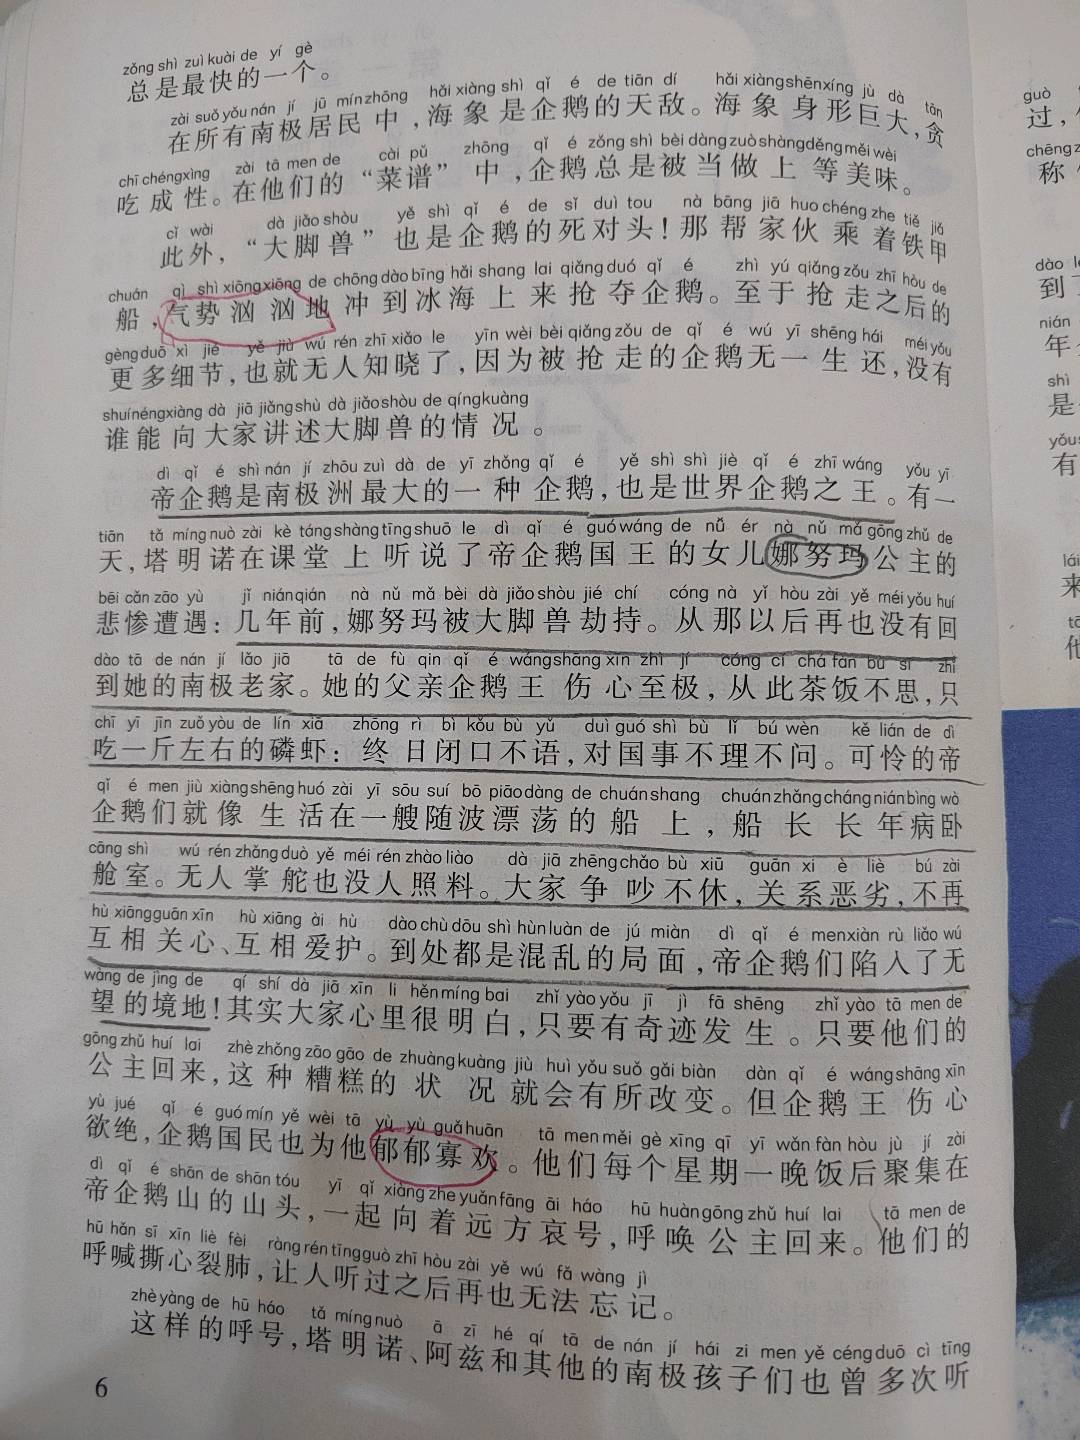 zǒng shì zuì kuài de yí gè
总是最快的一个。
zài suǒ yǒu nán jí jū mín zhōng hǎi xiàng shì qǐ é de tiān dí hǎi xiàng shēn xíng jù dà tān
在所有南极居民中,海象是企鹅的天敌。海象身形巨大,贪
chī chéng xìng zài tā men de cài pǔ zhōng qǐ é zǒng shì bèi dàng zuò shàng děng měi wèi
吃成性。在他们的“菜谱”中,企鹅总是被当做上等美味。
cǐ wài dà jiǎo shòu yě shì qǐ é de sǐ duì tou nà bāng jiā huo chéng zhe tiě jiǎ
此外,“大脚兽”也是企鹅的死对头!那帮家伙乘着铁甲
chuán qì shì xiōng xiōng de chōng dào bīng hǎi shang lai qiǎng duó qǐ é zhì yú qiǎng zǒu zhī hòu de
船,气势汹汹地冲到冰海上来抢夺企鹅。至于抢走之后的
gèng duō xì jié yě jiù wú rén zhī xiǎo le yīn wèi bèi qiǎng zǒu de qǐ é wú yī shēng hái méi yǒu
更多细节,也就无人知晓了,因为被抢走的企鹅无一生还,没有
shuí néng xiàng dà jiā jiǎng shù dà jiǎo shòu de qíng kuàng
谁能向大家讲述大脚兽的情况。
dì qǐ é shì nán jí zhōu zuì dà de yī zhǒng qǐ é yě shì shì jiè qǐ é zhī wáng yǒu yī
帝企鹅是南极洲最大的一种企鹅,也是世界企鹅之王。有一
tiān tǎ míng nuò zài kè táng shàng tīng shuō le dì qǐ é guó wáng de nǚ ér nà nǔ mǎ gōng zhǔ de
天,塔明诺在课堂上听说了帝企鹅国王的女儿娜努玛公主的
bēi cǎn zāo yù jǐ nián qián nà nǔ mǎ bèi dà jiǎo shòu jié chí cóng nà yǐ hòu zài yě méi yǒu huí
悲惨遭遇:几年前,娜努玛被大脚兽劫持。从那以后再也没有回
dào tā de nán jí lǎo jiā tā de fù qin qǐ é wáng shāng xīn zhì jí cóng cǐ chá fàn bù sī zhǐ
到她的南极老家。她的父亲企鹅王伤心至极,从此茶饭不思,只
chī yī jīn zuǒ yòu de lín xiā zhōng rì bì kǒu bù yǔ duì guó shì bù lǐ bú wèn kě lián de dì
吃一斤左右的磷虾:终日闭口不语,对国事不理不问。可怜的帝
qǐ é men jiù xiàng shēng huó zài yī sōu suí bō piāo dàng de chuán shang chuán zhǎng cháng nián bìng wò
企鹅们就像生活在一艘随波漂荡的船上,船长长年病卧
cāng shì wú rén zhǎng duò yě méi rén zhào liào dà jiā zhēng chǎo bù xiū guān xi è liè bú zài
舱室。无人掌舵也没人照料。大家争吵不休,关系恶劣,不再
hù xiāng guān xīn hù xiāng ài hù dào chù dōu shì hùn luàn de jú miàn dì qǐ é men xiàn rù liǎo wú
互相关心、互相爱护。到处都是混乱的局面,帝企鹅们陷入了无
wàng de jìng de qí shí dà jiā xīn li hěn míng bai zhǐ yào yǒu jī jì fā shēng zhǐ yào tā men de
望的境地!其实大家心里很明白,只要有奇迹发生。只要他们的
gōng zhǔ huí lai zhè zhǒng zāo gāo de zhuàng kuàng jiù huì yǒu suǒ gǎi biàn dàn qǐ é wáng shāng xīn
公主回来,这种糟糕的状况就会有所改变。但企鹅王伤心
yù jué qǐ é guó mín yě wèi tā yù yù guǎ huān tā men měi gè xīng qī yī wǎn fàn hòu jù jí zài
欲绝,企鹅国民也为他郁郁寡欢。他们每个星期一晚饭后聚集在
dì qǐ é shān de shān tóu yī qǐ xiàng zhe yuǎn fāng āi háo hū huàn gōng zhǔ huí lai tā men de
帝企鹅山的山头,一起向着远方哀号,呼唤公主回来。他们的
hū hǎn sī xīn liè fèi ràng rén tīng guò zhī hòu zài yě wú fǎ wàng jì
呼喊撕心裂肺,让人听过之后再也无法忘记。
zhè yàng de hū háo tǎ míng nuò ā zī hé qí tā de nán jí hái zi men yě céng duō cì tīng
这样的呼号,塔明诺、阿兹和其他的南极孩子们也曾多次听
6
guò
过,
chēng
称
dào
到
nián
年
shì
是
yǒu
有
lái
来
tā
他